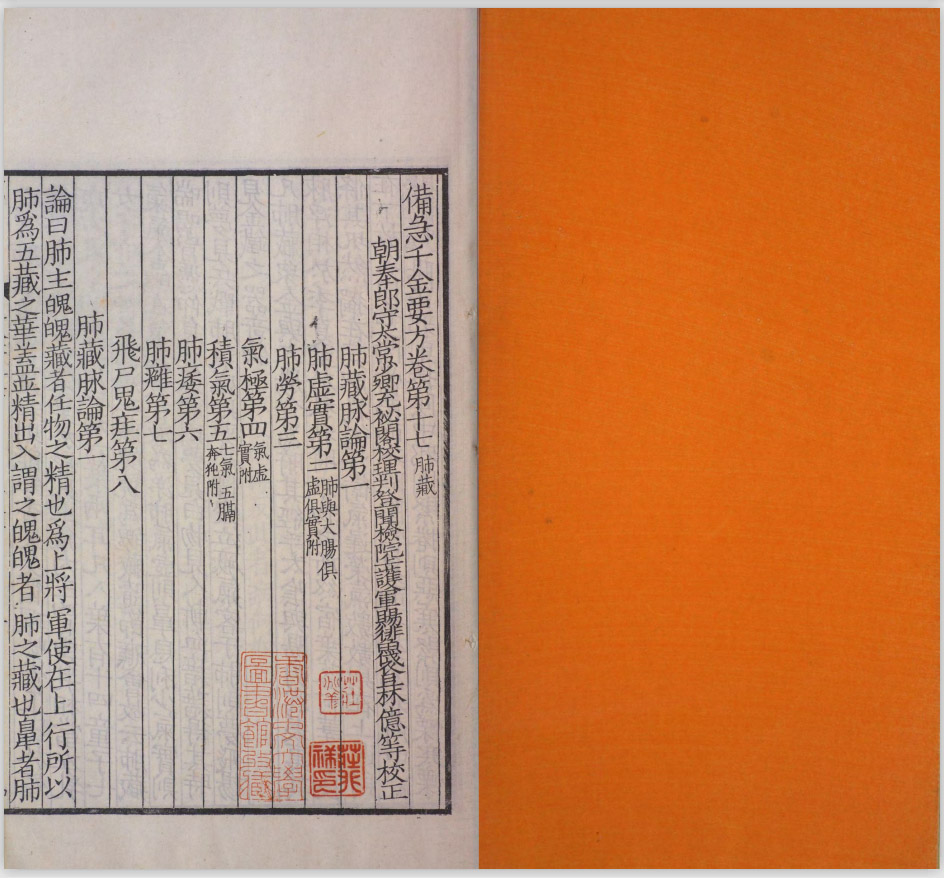 備急千金要方卷第十七 肺藏
朝奉郎守太常少卿充祕閣校理判登聞檢院上護軍賜緋魚袋臣林億等校正
肺藏脉論第一
肺虛實第二 肺與大腸俱虛俱實附
肺勞第三
氣極第四 氣虛實附
積氣第五 七氣 五膈 奔㹠附
肺痿第六
肺癰第七
飛尸鬼疰第八
肺藏脉論第一
論曰肺主魄魄藏者任物之精也爲上將軍使在上行所以
肺爲五藏之華蓋並精出入謂之魄魄者肺之藏也鼻者肺
香港中文大學
圖書館收藏